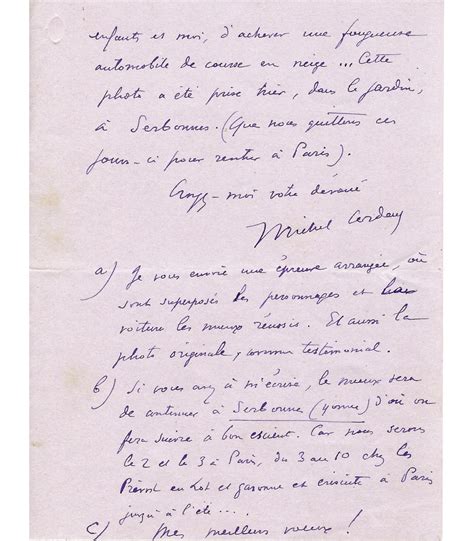 enfants et moi, d'achever une fougueuse
automobile de course en neige ... Cette
photo a été prise hier, dans le jardin,
à Serbonnes. (Que nous quittons ces
jours-ci pour rentrer à Paris).
Croyez-moi votre dévoué
Michel Corday
a) Je vous envoie une épreuve arrangée, où
sont superposés les personnages et
voiture les mieux réussis. Et aussi la
photo originale, comme testimonial.
b) Si vous avez à m'écrire, le mieux sera
de continuer à Serbonnes (Yonne) d'où on
fera suivre à bon escient. Car nous serons
le 2 et le 3 à Paris, du 3 au 10 chez les
Prévost en Lot et Garonne et ensuite à Paris
jusqu'à l'été ...
c) Mes meilleurs voeux !